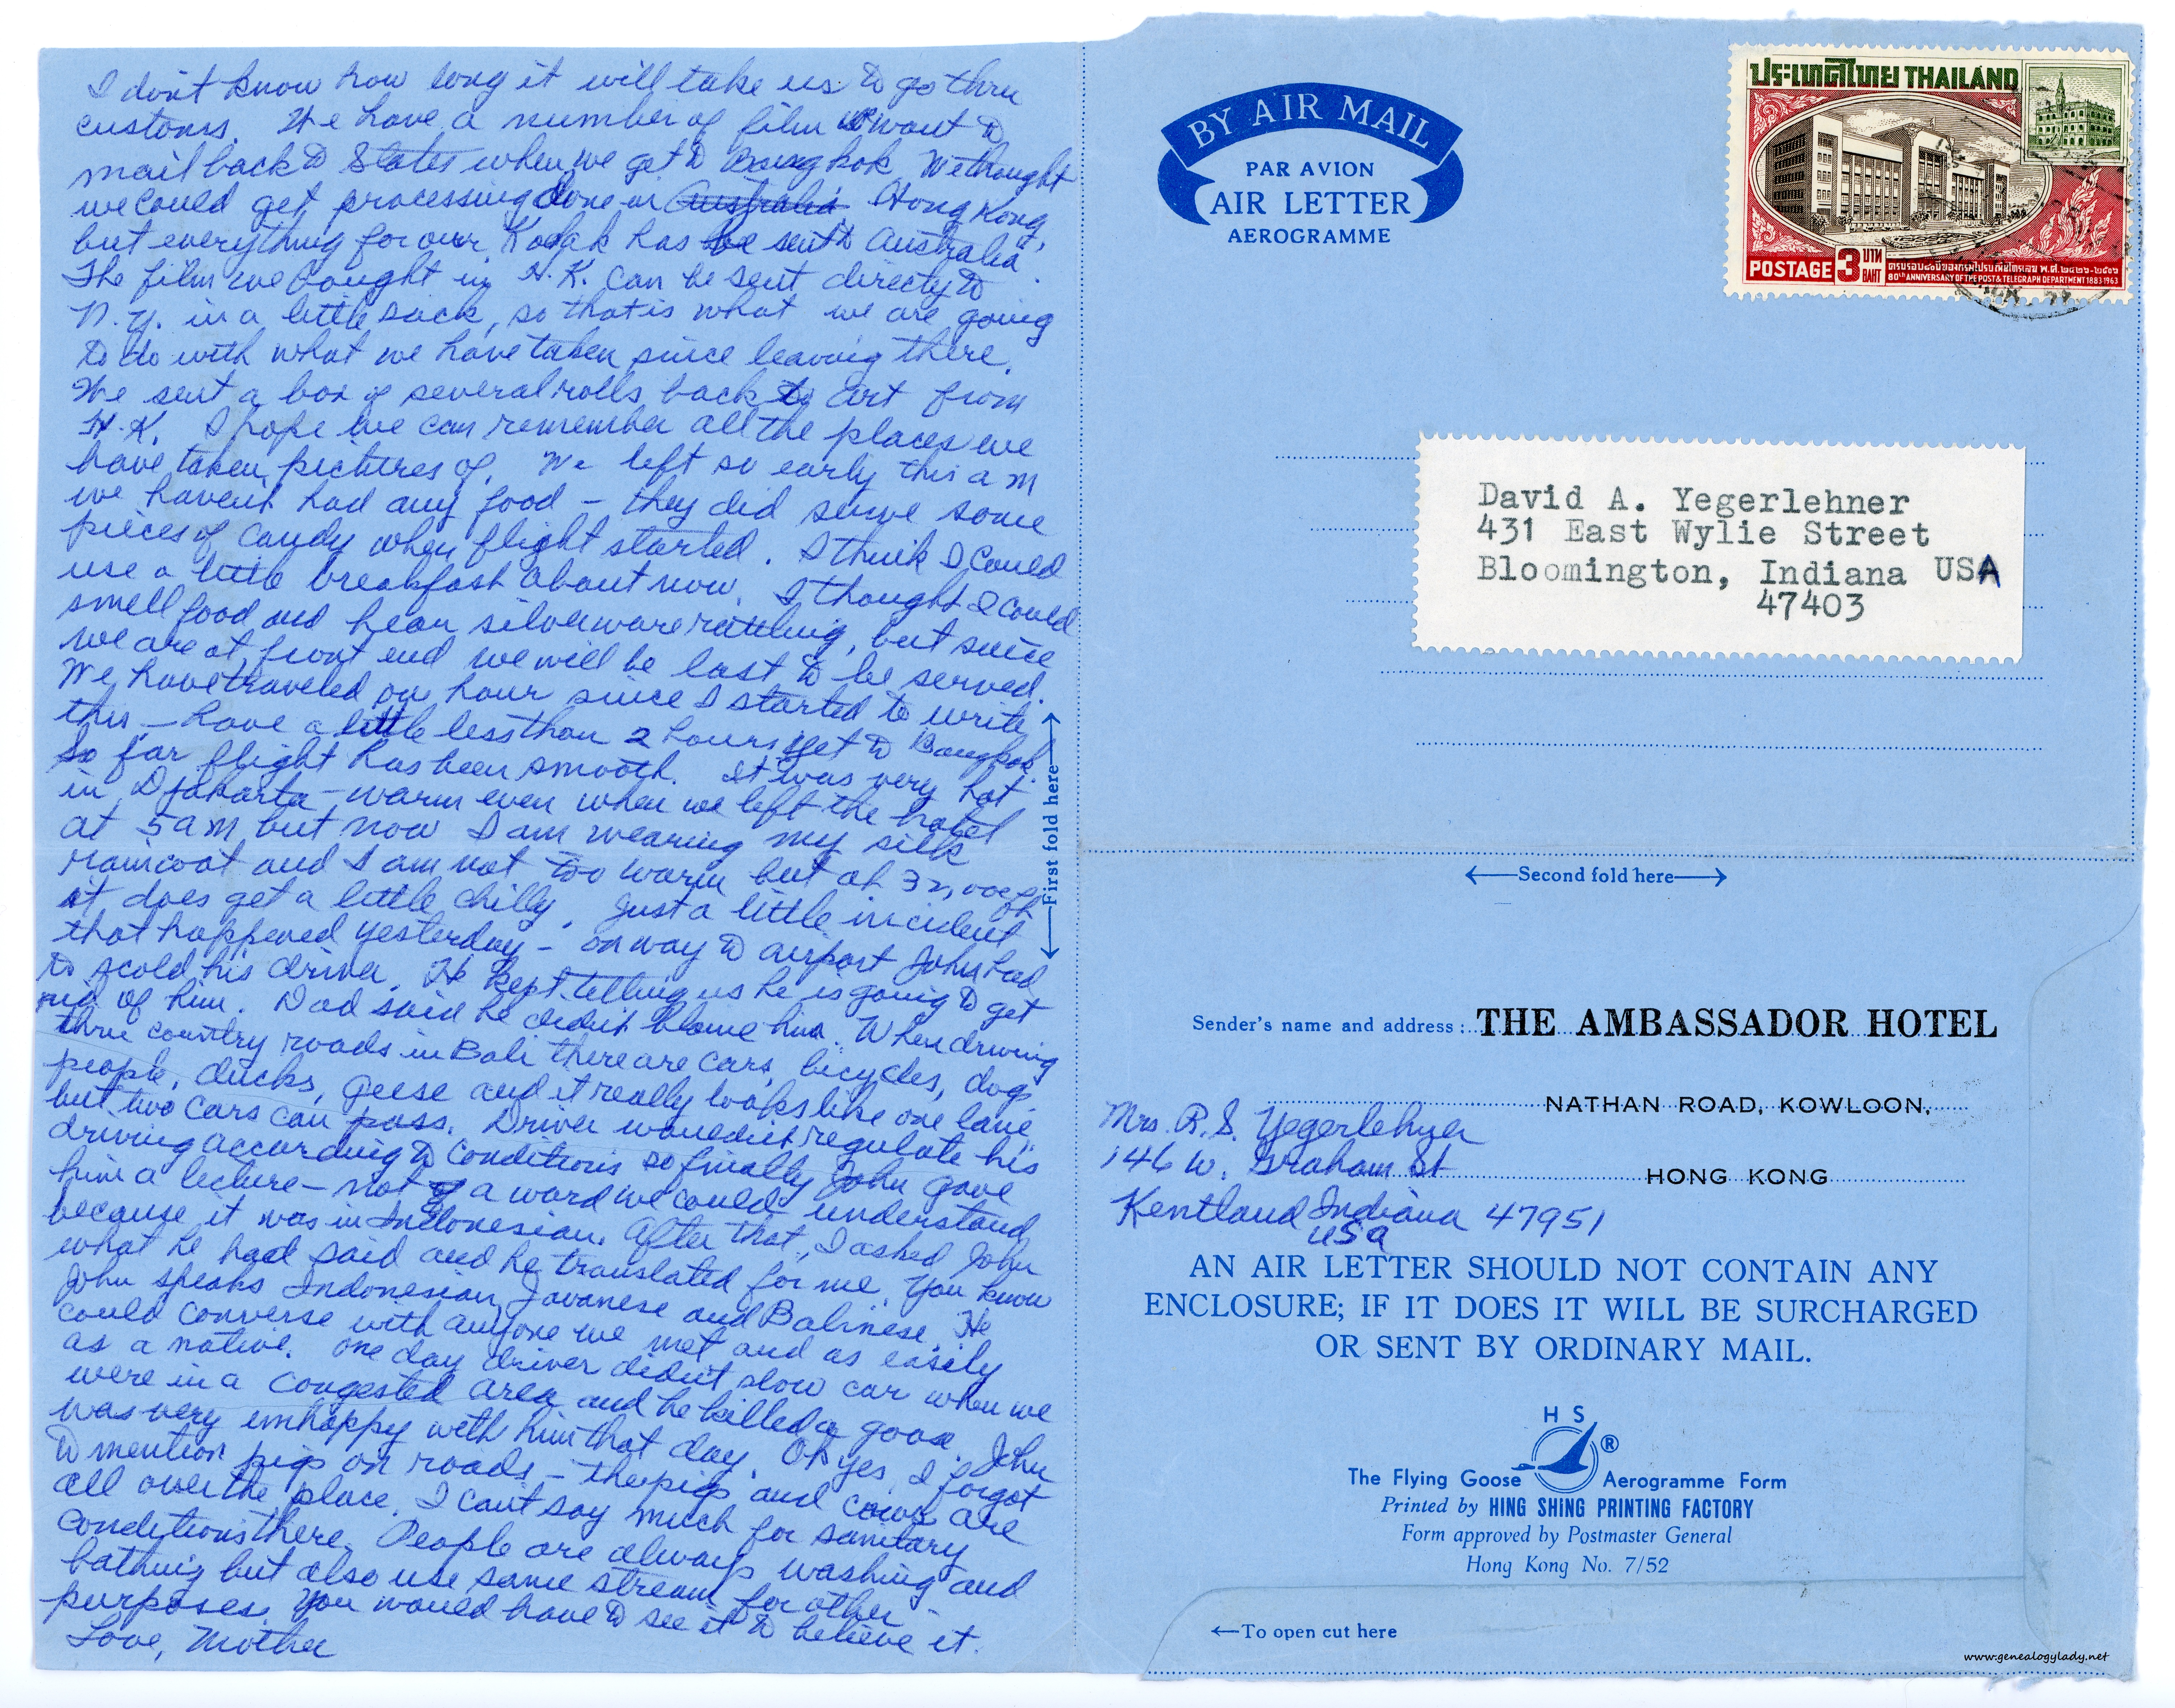 I don't know how long it will take us to go thru
customs. We have a number of film we want to
mail back to States when we get to Bangkok We thought
we could get processing done in Australia Hong Kong,
but everything for over Kodak has be sent to Australia.
The film we bought in H.K. can be sent directy to
N.Y. in a little sack, so that is what we are going
to do with what we have taken since leaving there.
We sent a box of several rolls back to Art from
H.K. I hope we can remember all the places we
have taken pictures of. We left so early this a m
we havent had any food – they did serve some
pieces of candy when flight started. I think I could
use a little breakfast about now. I thought I could
smell food and hear silverware rattling, but since
we are at front end we will be last to be served.
We have traveled one hour since I started to write
this – have a little less than 2 hours yet to Bangkok.
So far flight has been smooth. It was very hot
in Djakarta – warm even when we left the hotel
at 5 a m but now I am wearing my silk
raincoat and I am not too warm but at 32,000 ft
it does get a little chilly. Just a little incident
that happened yesterday – on way to airport John had
to scold his driver. He kept telling us he is going to get
rid of him. Dad said he didn't blame him. When driving
thru country roads in Bali there are cars, bicycles, dogs
people, ducks, geese and it really looks like one lane
but two cars can pass. Driver wouldn't regulate his
driving according to conditions so finally John gave
him a lecture – not of a word we could understand
because it was in Indonesian. After that, I asked John
what he had said and he translated for me. You know
John speaks Indonesian, Javanese and Balinese. He
could converse with anyone we met and as easily
as a native. One day driver didn't slow car when we
were in a congested area and he killed a goose. John
was very unhappy with him that day. Oh yes, I forgot
to mention pigs on roads – the pigs and cows are
all over the place. I can't say much for sanitary
conditions there. People are always washing and
bathing but also use same stream for other
purposes. You would have to see it to believe it.
Love, Mother
First fold here
BY AIR MAIL
PAR AVION
AIR LETTER
AEROGRAMME
ประเทศไทย THAILAND
POSTAGE 3 บาท BAHT
ครบรอบ ๘๐ ปีของกรมไปรษณีย์โทรเลข พ.ศ. ๒๔๒๖-๒๕๐๖
80th ANNIVERSARY OF THE POST & TELEGRAPH DEPARTMENT 1883-1963
David A. Yegerlehner
431 East Wylie Street
Bloomington, Indiana USA
47403
Second fold here
Sender's name and address: THE AMBASSADOR HOTEL
NATHAN ROAD, KOWLOON,
HONG KONG
Mrs. R.S. Yegerlehner
146 W. Graham St
Kentland Indiana 47951
USA
AN AIR LETTER SHOULD NOT CONTAIN ANY
ENCLOSURE; IF IT DOES IT WILL BE SURCHARGED
OR SENT BY ORDINARY MAIL.
H S
®
The Flying Goose Aerogramme Form
Printed by HING SHING PRINTING FACTORY
Form approved by Postmaster General
Hong Kong No. 7/52
To open cut here
www.genealogylady.net